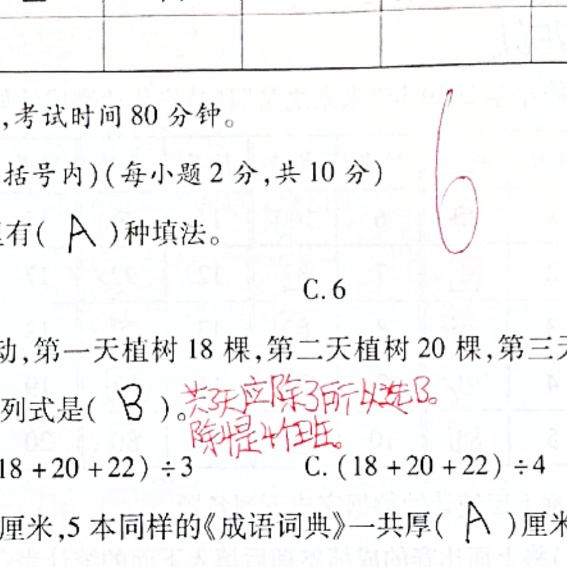 ,考试时间80分钟。
6
括号内)(每小题2分,共10分)
有( A )种填法。
C. 6
动,第一天植树18棵,第二天植树20棵,第三天
列式是( B )。共3天应除3所以选B。
除4是4个班。
18+20+22)÷3 C. (18+20+22)÷4
厘米,5本同样的《成语词典》一共厚( A )厘米